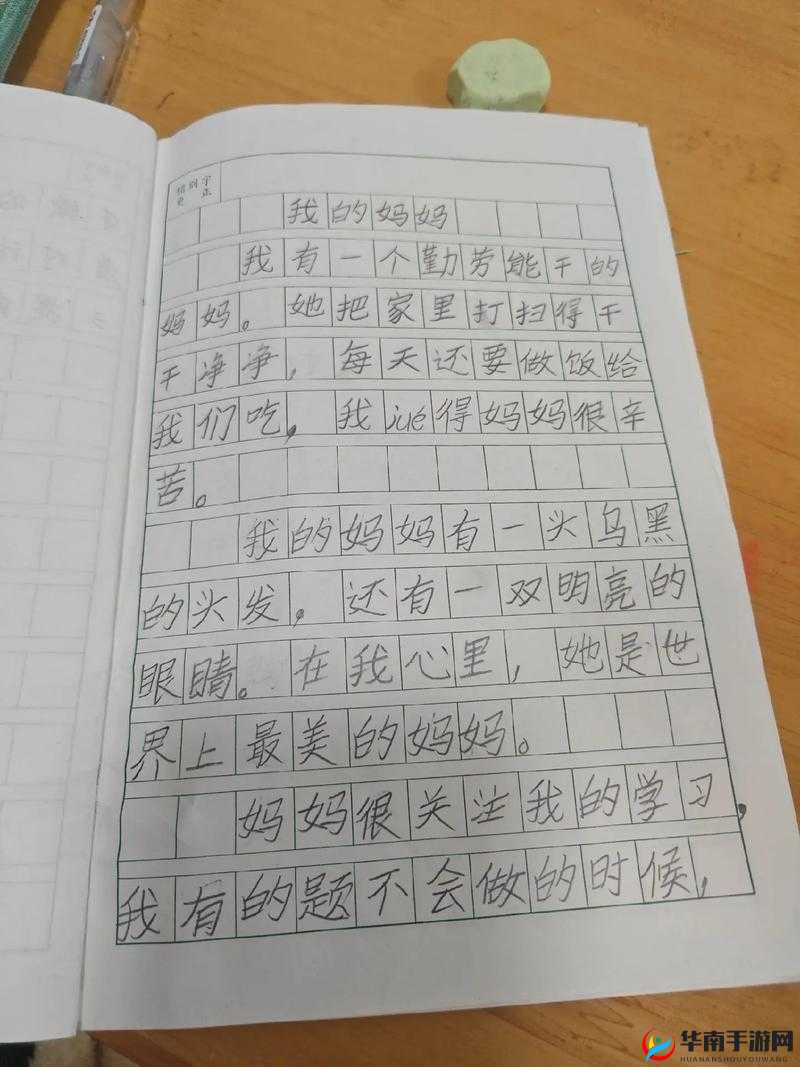 我的妈妈
我有一个勤劳能干的
妈妈。她把家里打扫得干
干净净，每天还要做饭给
我们吃，我jué得妈妈很辛
苦。
我的妈妈有一头乌黑
的头发，还有一双明亮的
眼睛。在我心里，她是世
界上最美的妈妈。
妈妈很关注我的学习，
我有的题不会做的时候，
华南手游网
HUANANSHOUYOUWANG